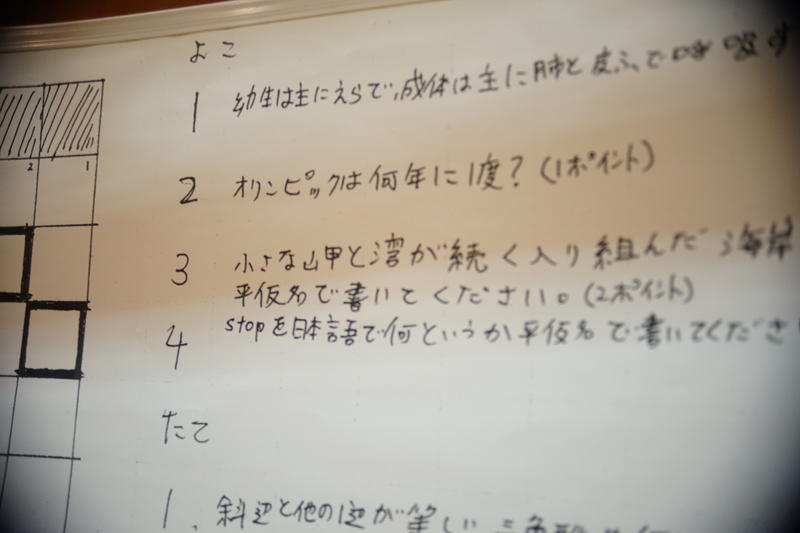 よこ
1 幼生は主にえらで、成体は主に肺と皮ふで呼吸す
2 オリンピックは何年に1度？（1ポイント）
3 小さな山甲と湾が続く入り組んだ海岸
平仮名で書いてください。（2ポイント）
4 stopを日本語で何というか平仮名で書いてくださ
たて
1. 斜辺と他の辺が等しい三角形
2 1